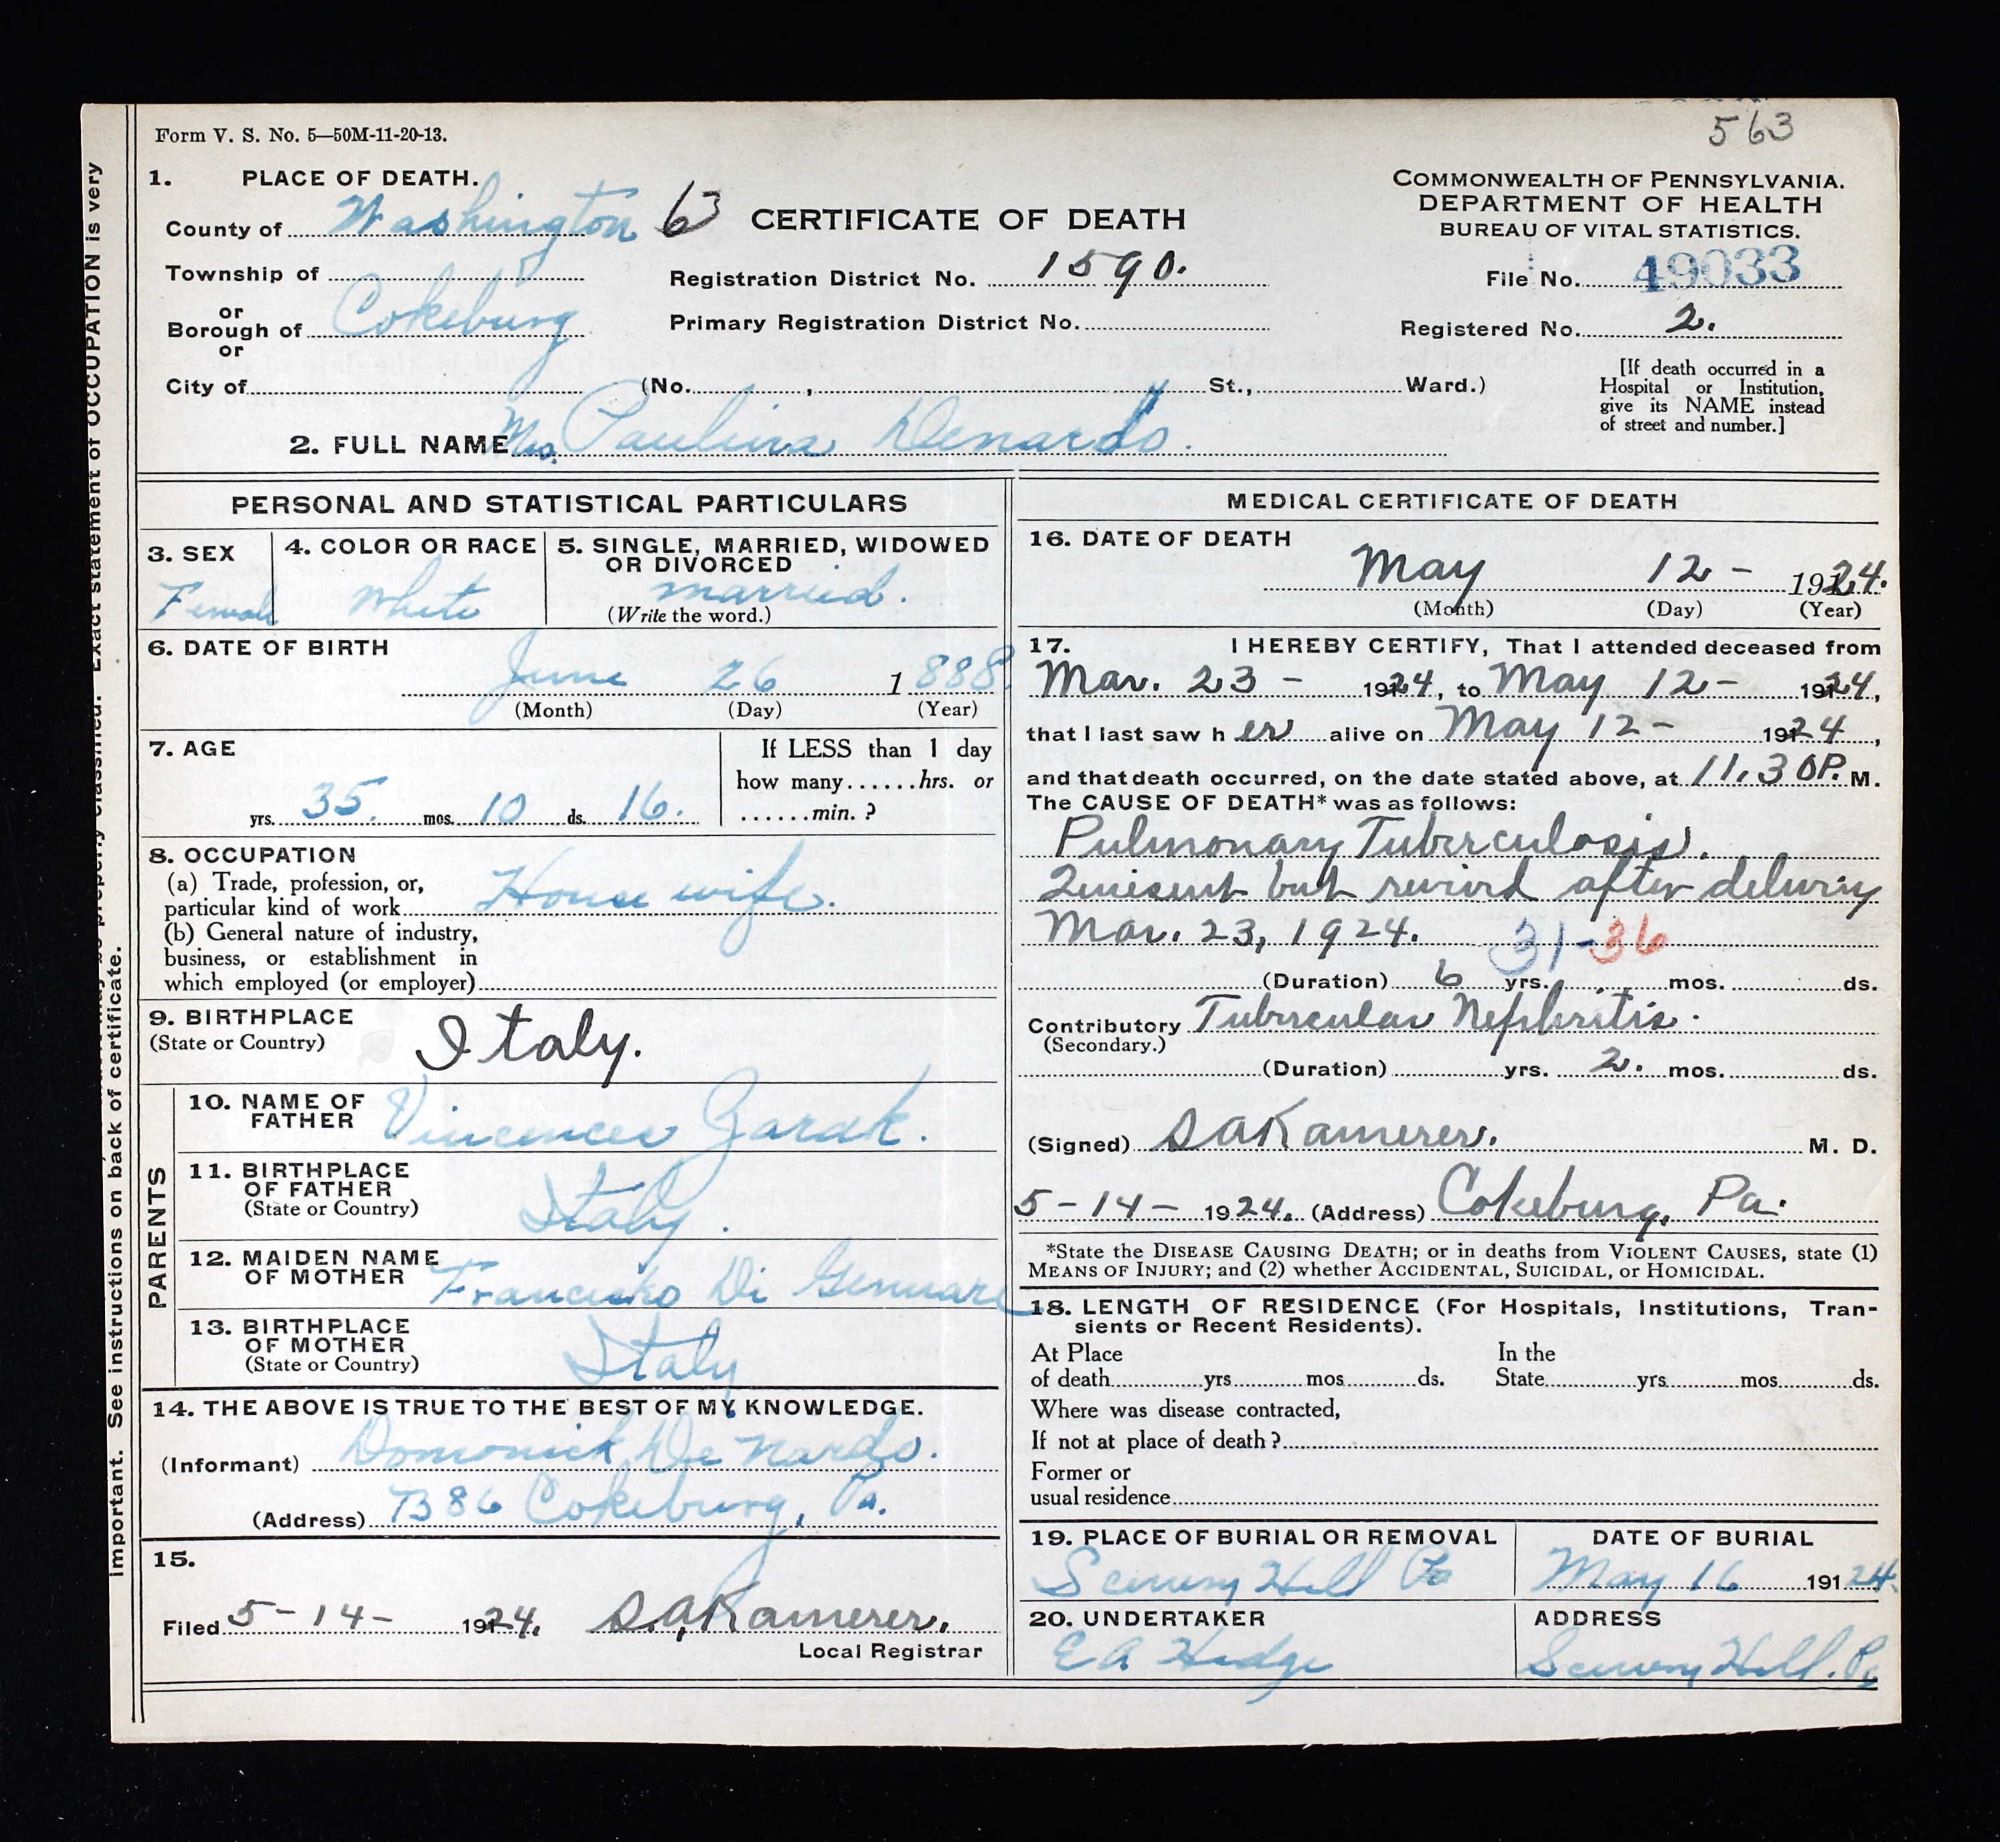 563
Form V. S. No. 5—50M-11-20-13.
1. PLACE OF DEATH.
County of Washington 63
Township of
or
Borough of Cokeburg
or
City of (No. , St., Ward.)
CERTIFICATE OF DEATH
Registration District No. 1590.
Primary Registration District No.
COMMONWEALTH OF PENNSYLVANIA.
DEPARTMENT OF HEALTH
BUREAU OF VITAL STATISTICS.
File No. 49033
Registered No. 2.
[If death occurred in a
Hospital or Institution,
give its NAME instead
of street and number.]
2. FULL NAME Mrs. Paulina Denardo.
PERSONAL AND STATISTICAL PARTICULARS
3. SEX
Female
4. COLOR OR RACE
White
5. SINGLE, MARRIED, WIDOWED
OR DIVORCED
married.
(Write the word.)
6. DATE OF BIRTH
June 26 1888.
(Month) (Day) (Year)
7. AGE
yrs. 35. mos. 10 ds. 16.
If LESS than 1 day
how many......hrs. or
......min. ?
8. OCCUPATION
(a) Trade, profession, or,
particular kind of work House wife.
(b) General nature of industry,
business, or establishment in
which employed (or employer)
9. BIRTHPLACE
(State or Country) Italy.
PARENTS
10. NAME OF
FATHER
11. BIRTHPLACE
OF FATHER
(State or Country) Italy.
12. MAIDEN NAME
OF MOTHER Di
13. BIRTHPLACE
OF MOTHER
(State or Country) Italy
14. THE ABOVE IS TRUE TO THE BEST OF MY KNOWLEDGE.
(Informant) Domonick De Nardo.
(Address) 386 Cokeburg, Pa.
15.
Filed 5-14- 1924. S.A. Kamerer.
Local Registrar
MEDICAL CERTIFICATE OF DEATH
16. DATE OF DEATH
May 12- 1924.
(Month) (Day) (Year)
17. I HEREBY CERTIFY, That I attended deceased from
Mar. 23 - 1924, to May 12- 1924,
that I last saw h er alive on May 12- 1924,
and that death occurred, on the date stated above, at 11.30P. M.
The CAUSE OF DEATH* was as follows:
Pulmonary Tuberculosis.
but after delivery
Mar. 23, 1924. 31-36
(Duration) 6 yrs. mos. ds.
Contributory Tubercular Nephritis.
(Secondary.)
(Duration) yrs. 2. mos. ds.
(Signed) SAKamerer. M. D.
5-14- 1924. (Address) Cokeburg, Pa.
*State the DISEASE CAUSING DEATH; or in deaths from VIOLENT CAUSES, state (1)
MEANS OF INJURY; and (2) whether ACCIDENTAL, SUICIDAL, or HOMICIDAL.
18. LENGTH OF RESIDENCE (For Hospitals, Institutions, Tran-
sients or Recent Residents).
At Place In the
of death yrs mos ds. State yrs mos ds.
Where was disease contracted,
If not at place of death?
Former or
usual residence
19. PLACE OF BURIAL OR REMOVAL
Scenery Hill Pa
DATE OF BURIAL
May 16 1924.
20. UNDERTAKER
E A Hodge
ADDRESS
Scenery Hill. Pa
Exact statement of OCCUPATION is very
important. See instructions on back of certificate.